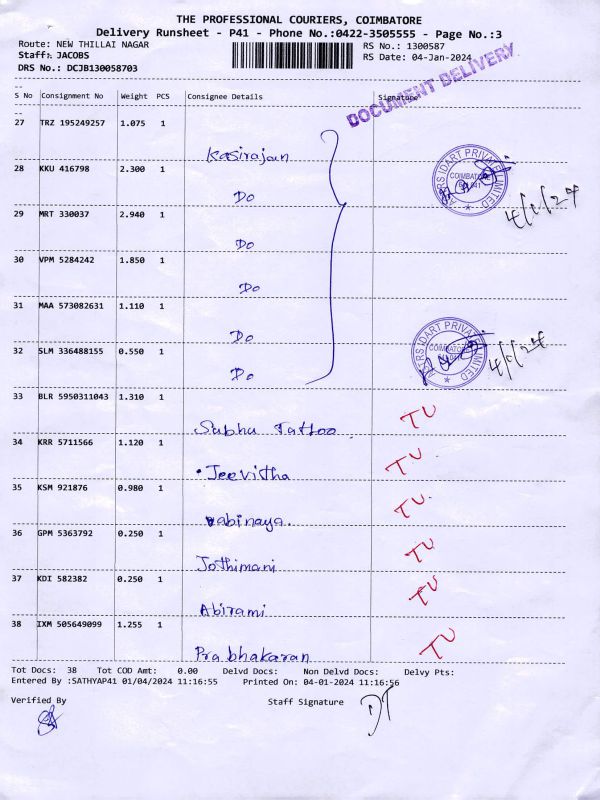 THE PROFESSIONAL COURIERS, COIMBATORE
Delivery Runsheet - P41 - Phone No.:0422-3505555 - Page No.:3
Route: NEW THILLAI NAGAR RS No.: 1300587
Staff: JACOBS RS Date: 04-Jan-2024
DRS No.: DCJB130058703
DOCUMENT DELIVERY
S No Consignment No Weight PCS Consignee Details Signature
27 TRZ 195249257 1.075 1
Kasirajan
28 KKU 416798 2.300 1
Do
COIMBATORE
4/1/24
29 MRT 330037 2.940 1
Do
30 VPM 5284242 1.850 1
Do
31 MAA 573082631 1.110 1
Do
32 SLM 336488155 0.550 1
Do
4/1/24
33 BLR 5950311043 1.310 1
Subhu Tattoo TU
34 KRR 5711566 1.120 1
Jeevitha TU
35 KSM 921876 0.980 1
vabinaya. TU
36 GPM 5363792 0.250 1
Jothimani TU
37 KDI 582382 0.250 1
Abirami TU
38 IXM 505649099 1.255 1
Prabhakaran TU
Tot Docs: 38 Tot COD Amt: 0.00 Delvd Docs: Non Delvd Docs: Delvy Pts:
Entered By :SATHYAP41 01/04/2024 11:16:55 Printed On: 04-01-2024 11:16:56
Verified By Staff Signature